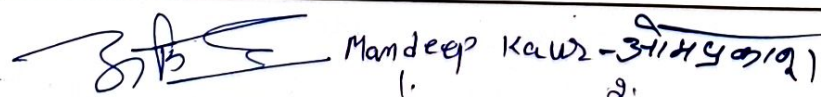 Mandeep Kaur - ओमप्रकाश
1. 2.